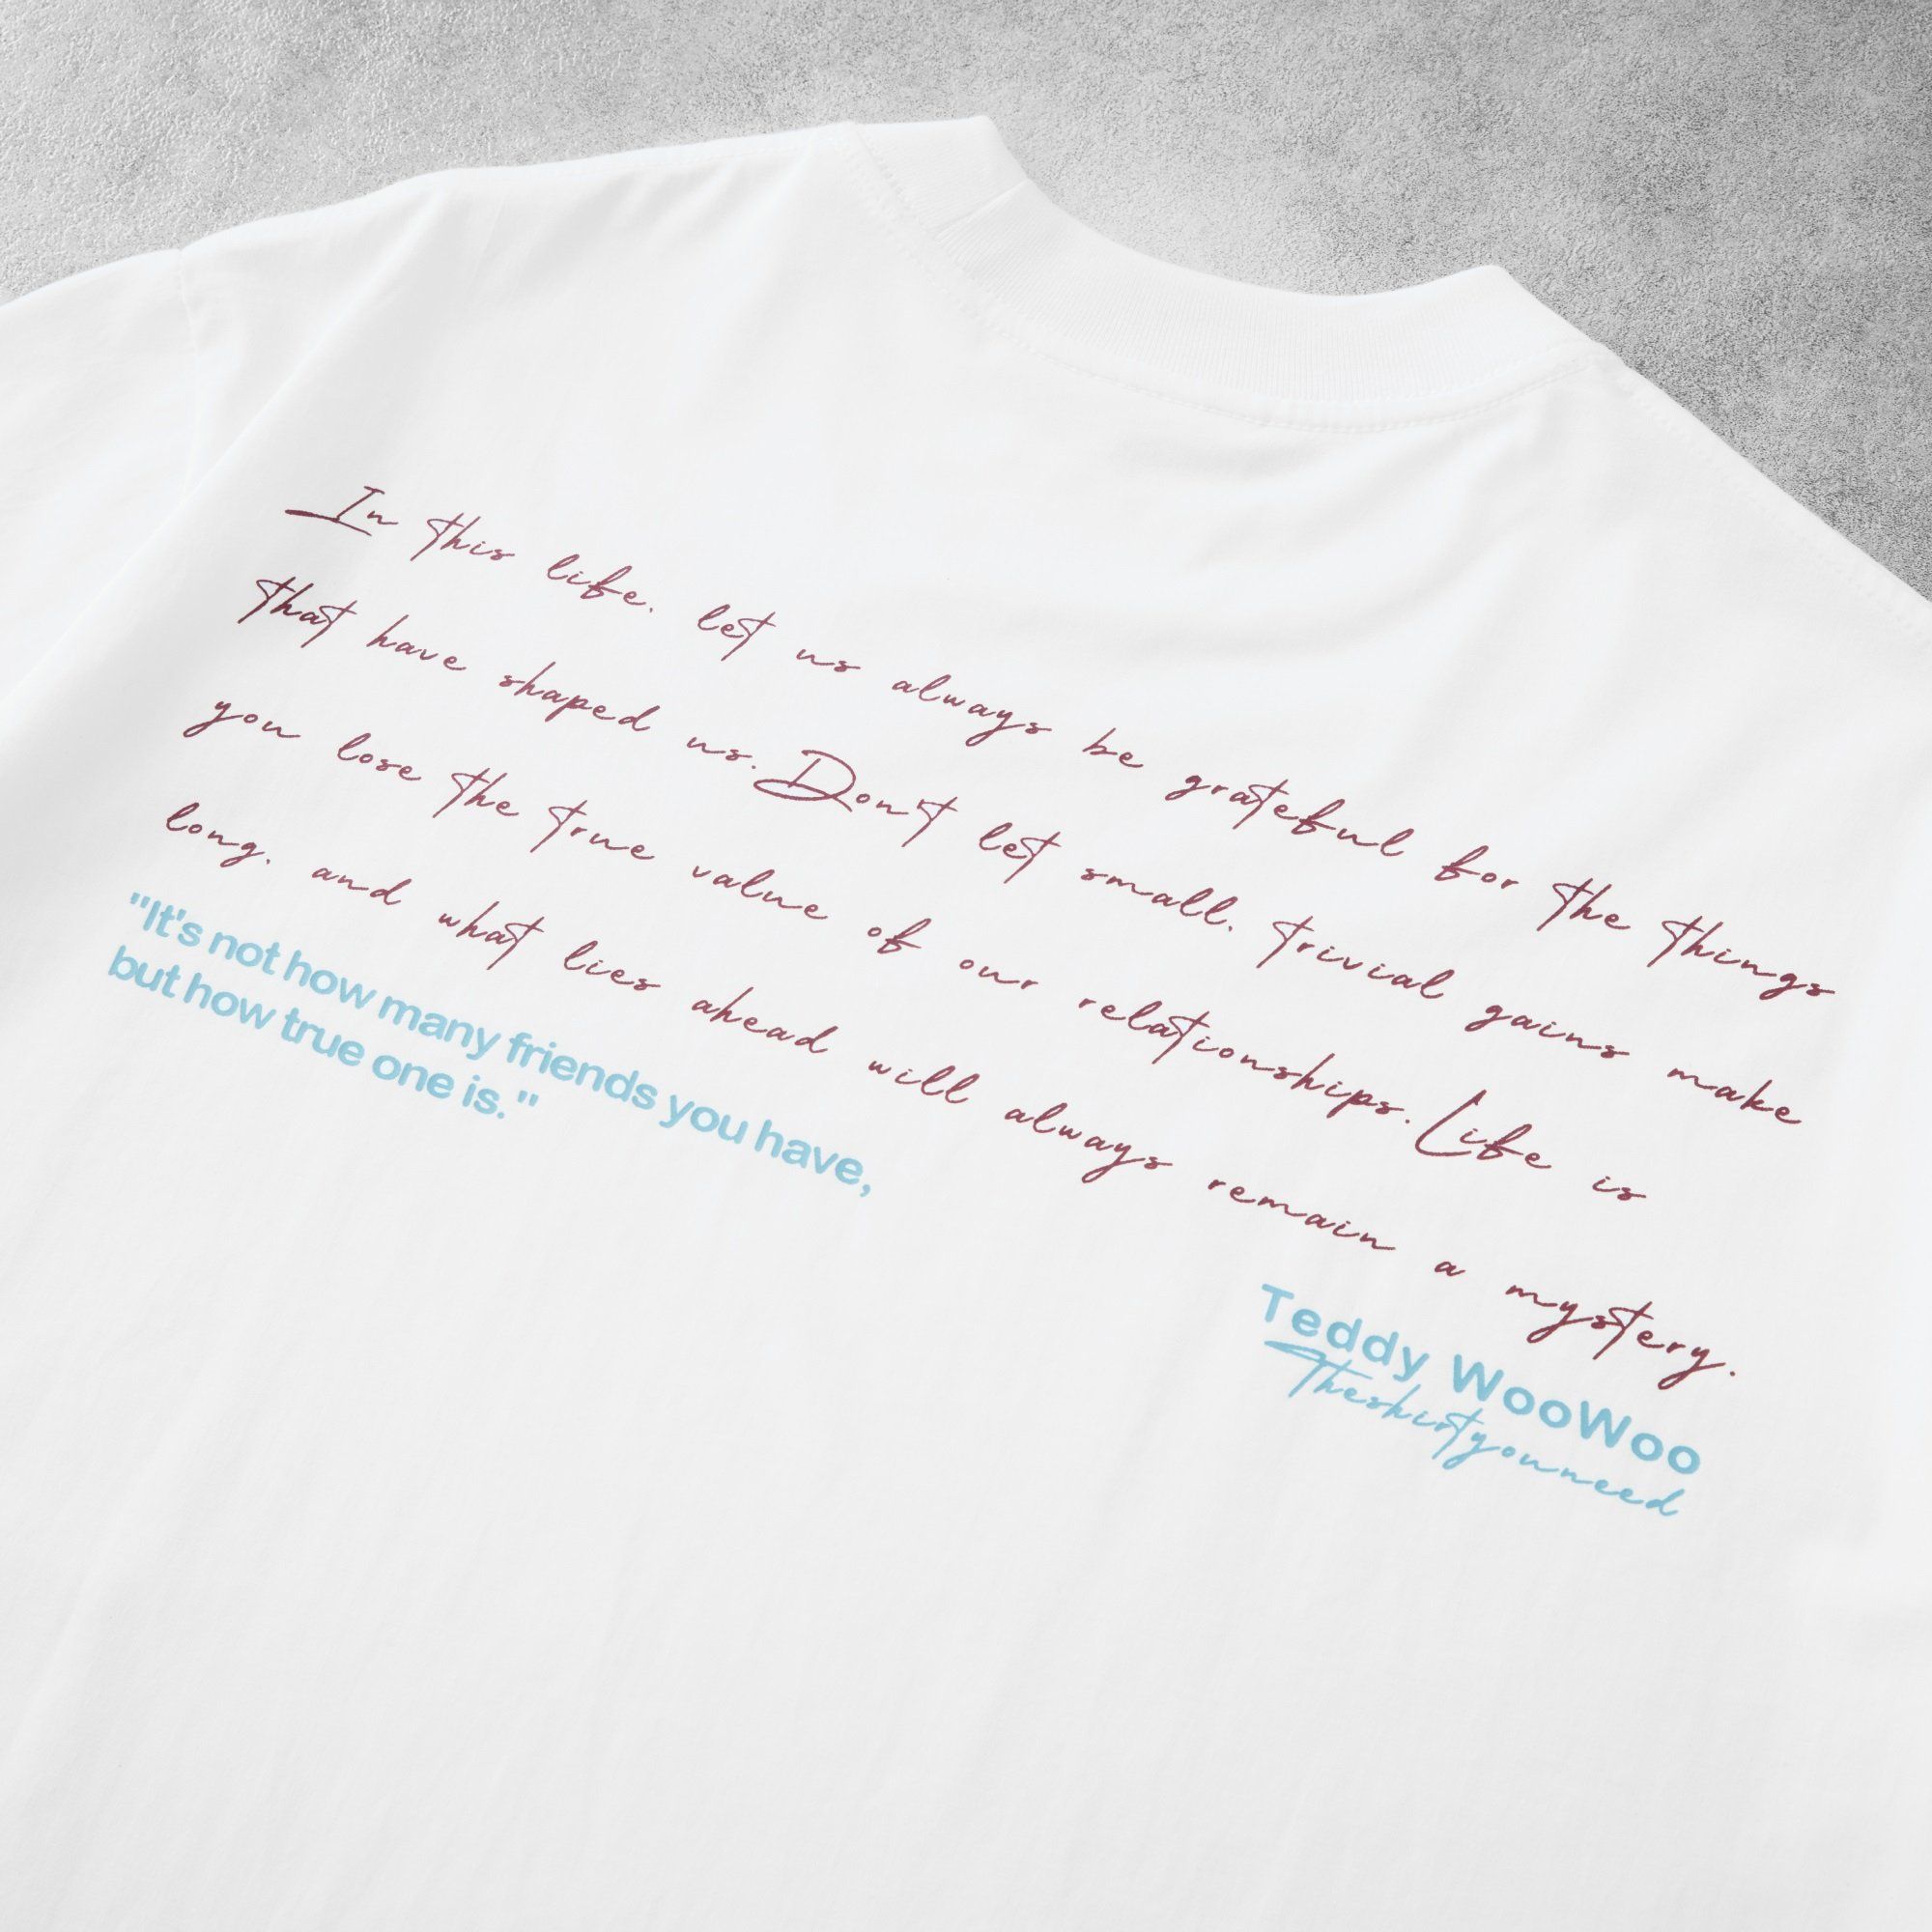 In this life, let us always be grateful for the things
that have shaped us. Don't let small, trivial gains make
you lose the true value of our relationships. Life is
long, and what lies ahead will always remain a mystery.
"It's not how many friends you have,
but how true one is."
Teddy WooWoo
Theshirtyouneed